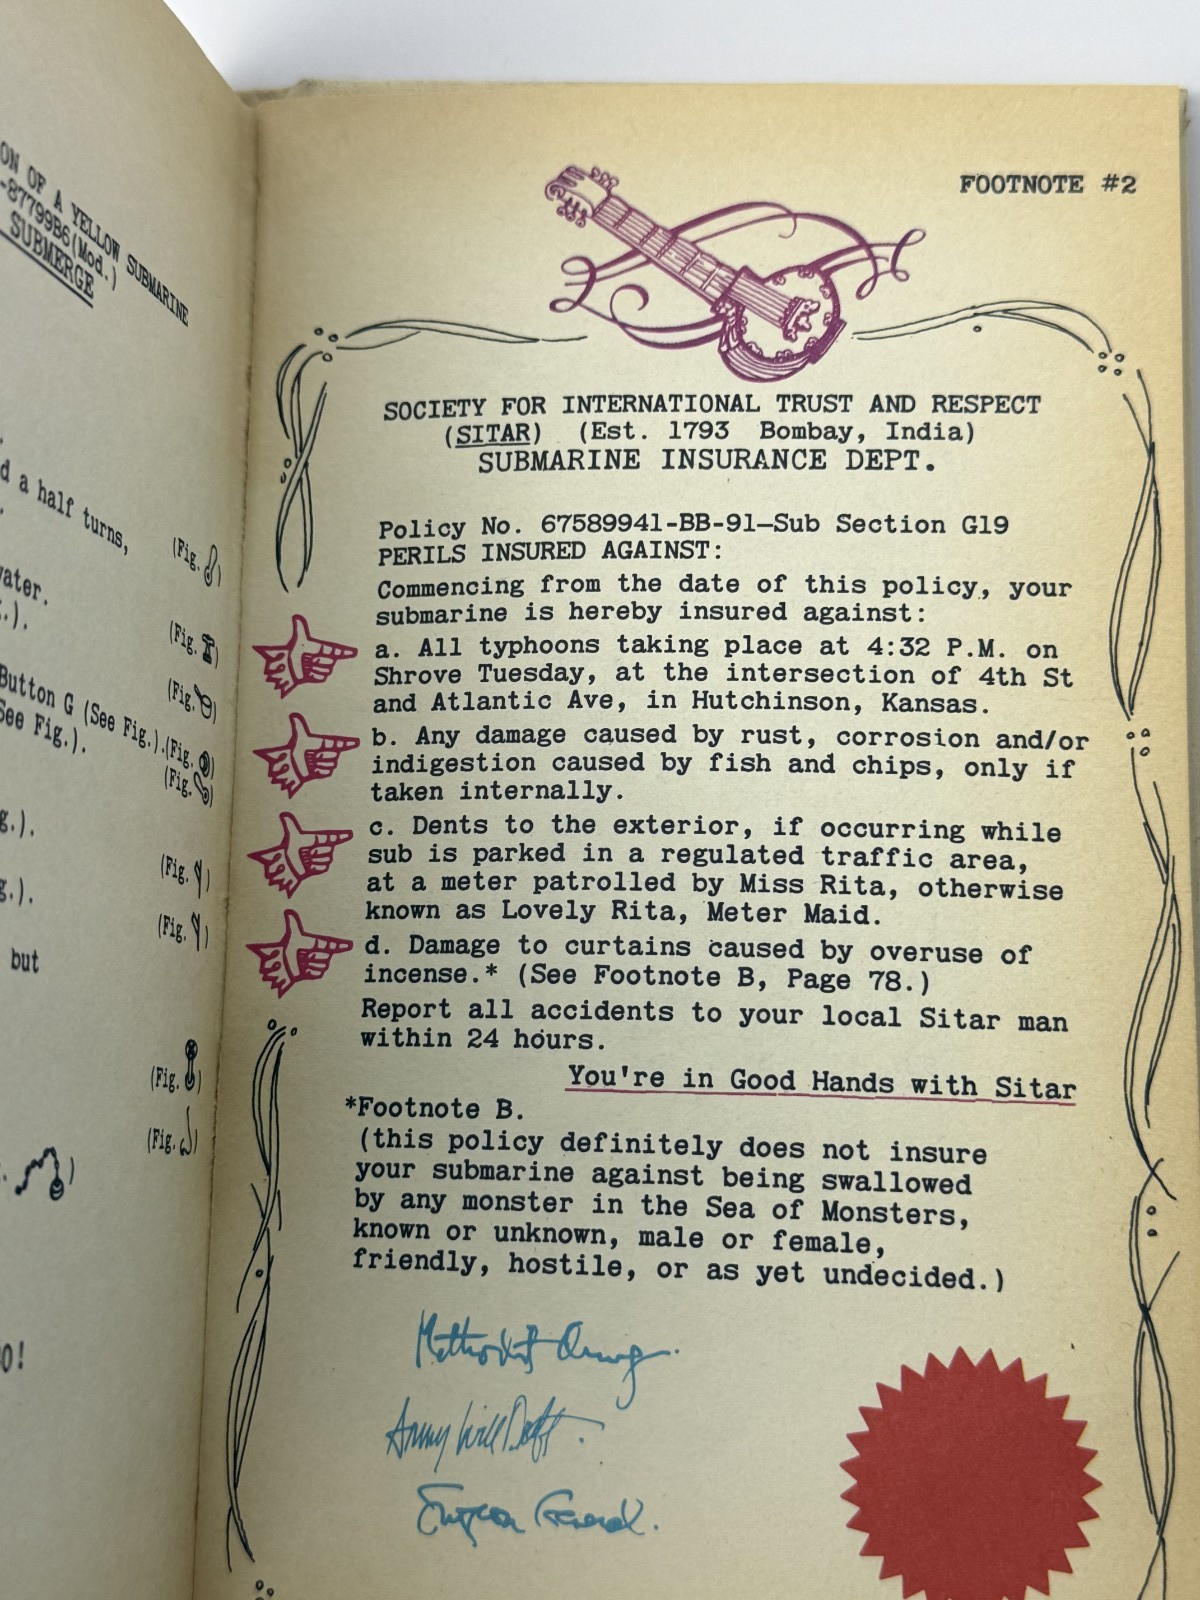 ON OF A YELLOW SUBMARINE
-87799B6(Mod.)
SUBMERGE
d a half turns,
(Fig. )
water.
(Fig. )
Button G (See Fig.).
(Fig. )
See Fig.).
(Fig. )
(Fig. )
g.).
(Fig. )
g.).
(Fig. )
but
(Fig. )
(Fig. )
O!
FOOTNOTE #2
SOCIETY FOR INTERNATIONAL TRUST AND RESPECT
(SITAR) (Est. 1793 Bombay, India)
SUBMARINE INSURANCE DEPT.
Policy No. 67589941-BB-91—Sub Section G19
PERILS INSURED AGAINST:
Commencing from the date of this policy, your
submarine is hereby insured against:
a. All typhoons taking place at 4:32 P.M. on
Shrove Tuesday, at the intersection of 4th St
and Atlantic Ave, in Hutchinson, Kansas.
b. Any damage caused by rust, corrosion and/or
indigestion caused by fish and chips, only if
taken internally.
c. Dents to the exterior, if occurring while
sub is parked in a regulated traffic area,
at a meter patrolled by Miss Rita, otherwise
known as Lovely Rita, Meter Maid.
d. Damage to curtains caused by overuse of
incense.* (See Footnote B, Page 78.)
Report all accidents to your local Sitar man
within 24 hours.
You're in Good Hands with Sitar
*Footnote B.
(this policy definitely does not insure
your submarine against being swallowed
by any monster in the Sea of Monsters,
known or unknown, male or female,
friendly, hostile, or as yet undecided.)
Surgeon General.